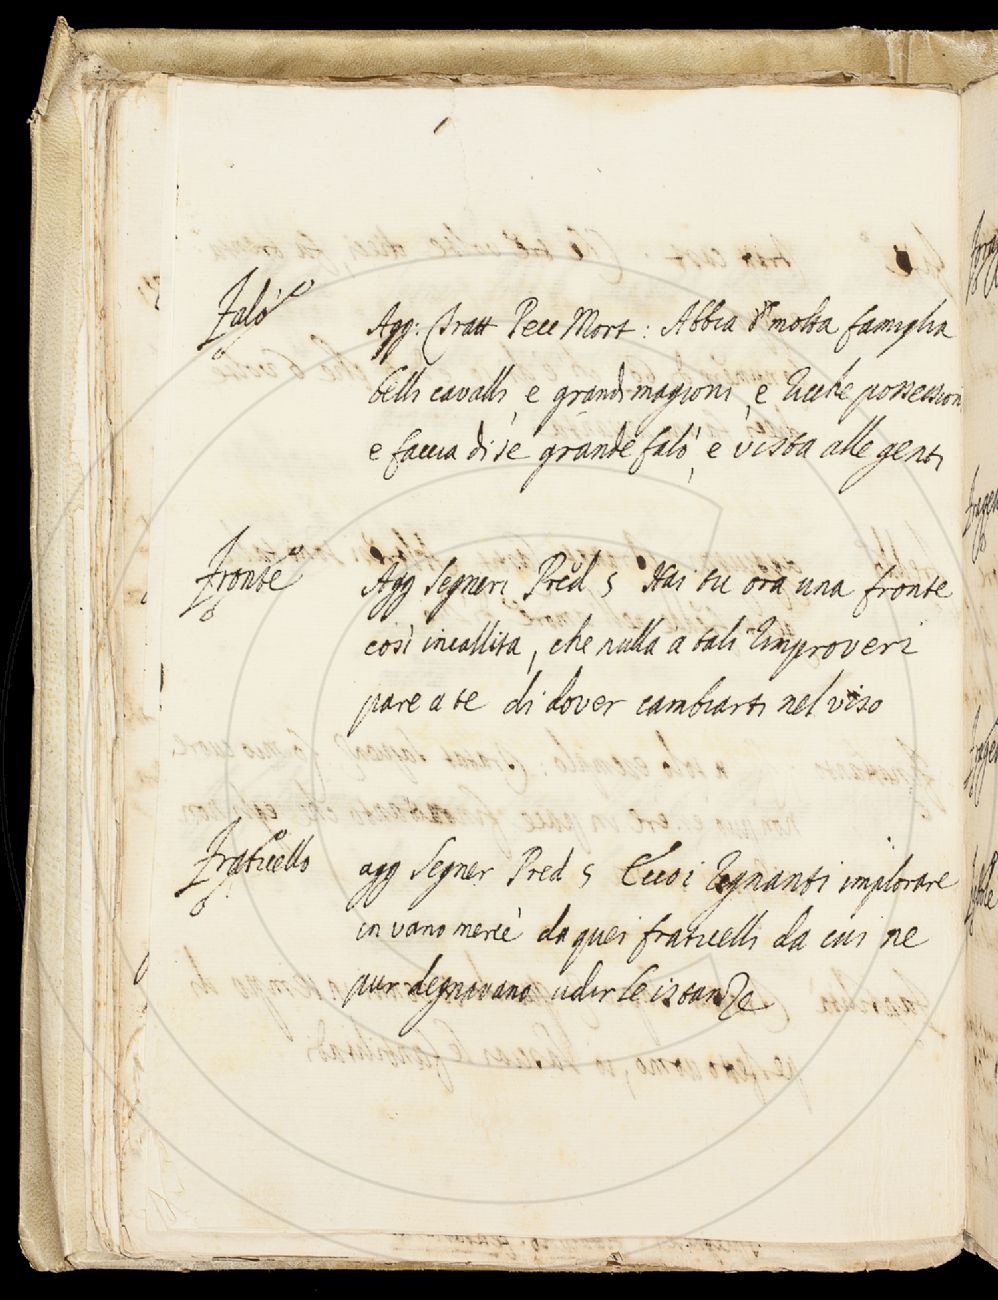 Falò
Agg: Tratt Pecc Mort: Abbia di molta famiglia
belli cavalli, e grandi magioni, e ricche possessioni
e faccia di se grande falò, e vista alle genti
Fronte
Agg Segneri Pred 5 Hai tu ora una fronte
così incallita, che nulla a tali rimproveri
pare a te di dover cambiarti nel viso
Fraticello
agg Segner Pred 5 Regnanti implorare
in vano mercè da quei fraticelli da cui ne
pur degnavano udir le istanze